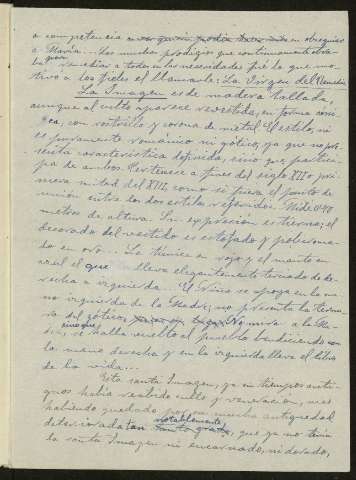 a competencia en obsequio
a María... Los muchos prodigios que continuamente obra
para remediar a todos en las necesidades fué lo que mo-
tivó a los fieles el llamarla: La Virgen del Remedio
La Imagen es de madera tallada,
aunque al culto aparece revestida, en forma cóni-
ca, con rostrillo y corona de metal. El estilo, ni
es puramente románico ni gótico, ya que no pre-
senta característica definida, sino que partici-
pa de ambos. Pertenece a fines del siglo XII o pri-
mera mitad del XIII, como si fuera el punto de
unión entre los dos estilos referidos. Mide 0'90
metros de altura. Su expresión es tierna; el
decorado del vestido es estofado y policroma-
do en oro. La túnica en rojo y el manto en
azul el que lleva elegantemente terciado de de-
recha a izquierda. El Niño se apoya en la ma-
no izquierda de la Madre; no presenta la ternu-
ra del gótico, No mira a la Ma-
dre, sino que se halla vuelto al pueblo bendiciendo con
la mano derecha y en la izquierda lleva el libro
de la vida...
Esta santa Imagen, ya en tiempos anti-
guos había recibido culto y veneración, mas
habiendo quedado por su mucha antigüedad
deteriorada tan notablemente, que ya no tenía
la santa Imagen ni encarnado, ni dorado,